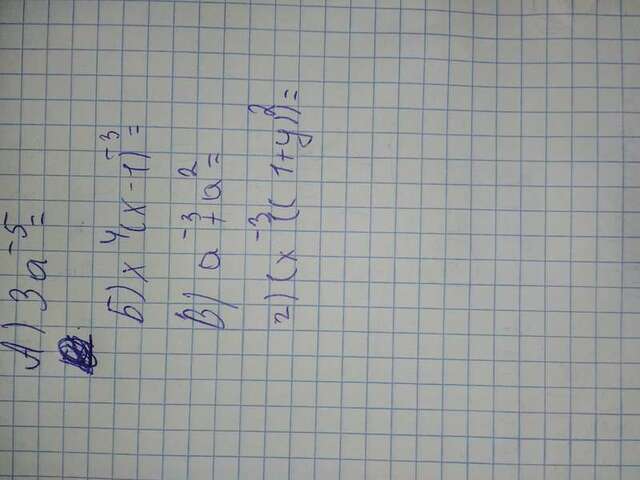 А) 3a⁻⁵=
Б) x⁴(x-1)⁻³=
В) a⁻³+a²=
г) (x⁻³((1+y)²)=